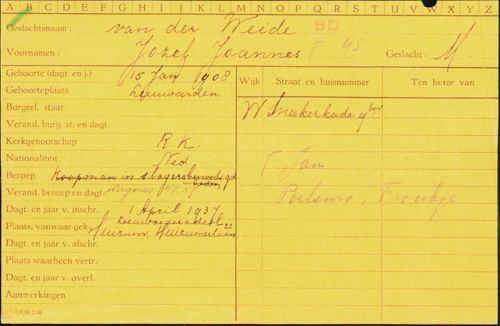 A B C D E F G H I J K L M N O P Q R S T U V W X Y Z
Geslachtsnaam : van der Weide BD
Voornamen : Jozef Joannes 45 Geslacht : M.
Geboorte (dagt. en j.) 15 Jan. 1908 Wijk Straat en huisnummer Ten huize van
Geboorteplaats Leeuwarden
Burgerl. staat W Sneekerkade 9 bov
Verand. burg. st. en dagt.
Kerkgenootschap R.K.
Nationaliteit Ned.
Beroep Koopman in slagersbenoodigd Jan
heden
Verand. beroep en dagt. slagers Poelsma, Froukje
Dagt. en jaar v. inschr. 1 April 1937
Plaats, vanwaar gek. Leeuwarderadeel
Huizum, Huizumerlaan 22
Dagt. en jaar v. afschr.
Plaats waarheen vertr.
Dagt. en jaar v. overl.
Aanmerkingen